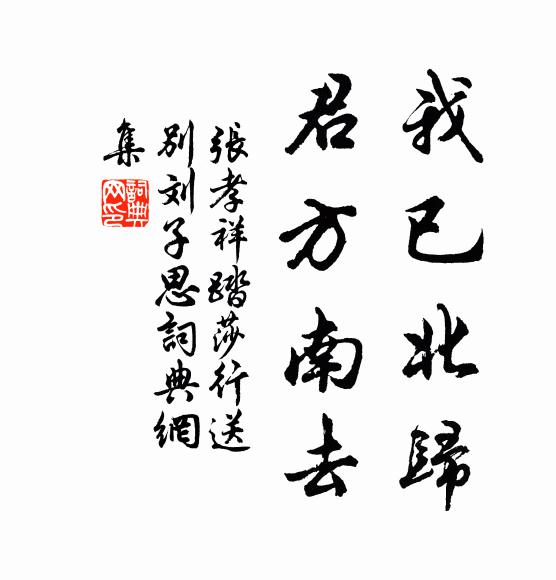 我已北歸
君方南去
張孝祥踏莎行送
別刘子思詞典網
集
詞典
网印